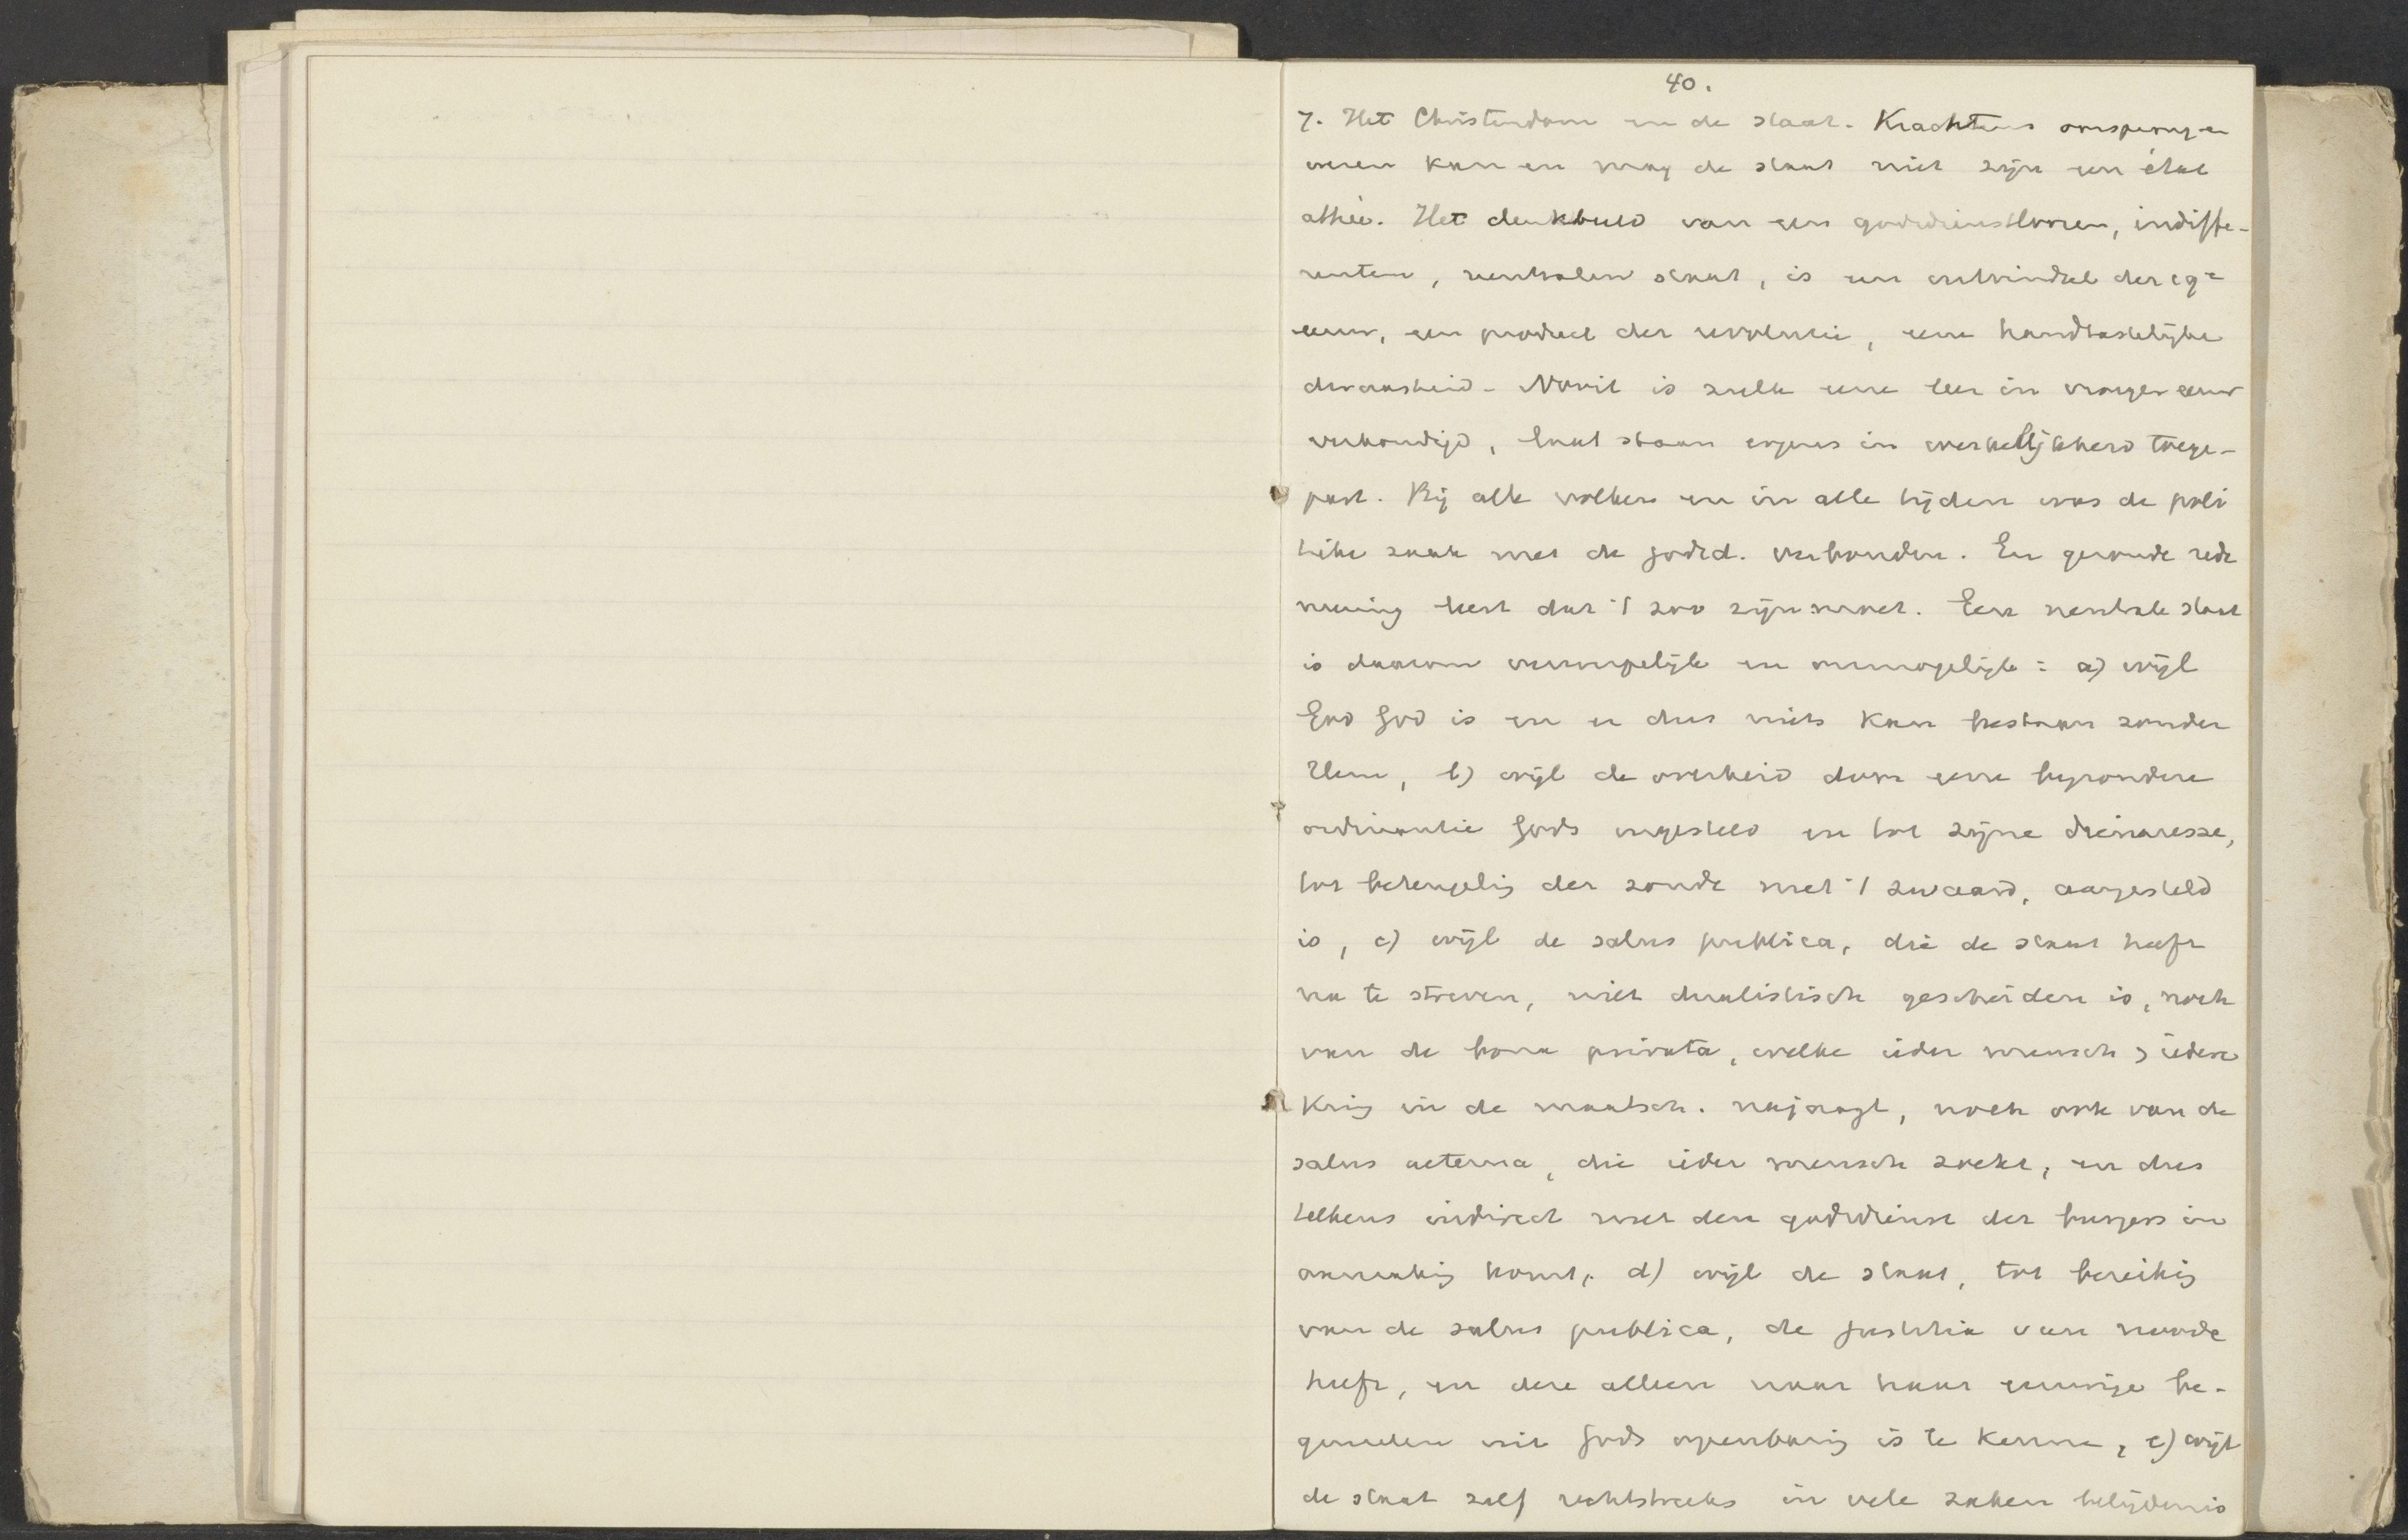 40.
7. Het Christendom en de staat. Krachtens oorsprong en
wezen kan en mag de staat niet zijn een état
athée. Het denkbeeld van een godsdienstloozen, indiffe-
renten, neutralen staat, is een uitvindsel der 19e
eeuw, een product der revolutie, eene handtastelijke
dwaasheid. Nooit is zulk eene leer in vroeger eeuw
verkondigd, laat staan ergens in werkelijkheid toege-
past. Bij alle volken en in alle tijden was de poli
tieke zaak met de godsd. verbonden. En gezonde rede
neering leert dat 't zoo zijn moet. Een neutrale staat
is daarom onmogelijk: a) wijl
God God is en er dus niets kan bestaan zonder
Hem, b) wijl de overheid door eene bijzondere
ordinantie Gods ingesteld en tot zijne dienaresse,
tot beteugelig der zonde met 't zwaard, aangesteld
is, c) wijl de salus publica, die de staat heeft
na te streven, niet dualistisch gescheiden is, noch
van de bona privata, welke ieder mensch, iedere
Kring in de maatsch. najaagt, noch ook van de
salus aeterna, die ieder mensch zoekt, en dus
telkens indirect met den godsdienst der burgers in
aanrakig komt, d) wijl de staat, tot bereikig
van de salus publica, de justitia van noode
heeft, en deze alleen naar haar eeuwige be-
ginselen uit Gods openbarig is te kennen, e) wijl
de staat zelf rechtstreeks in vele zaken belijdenis